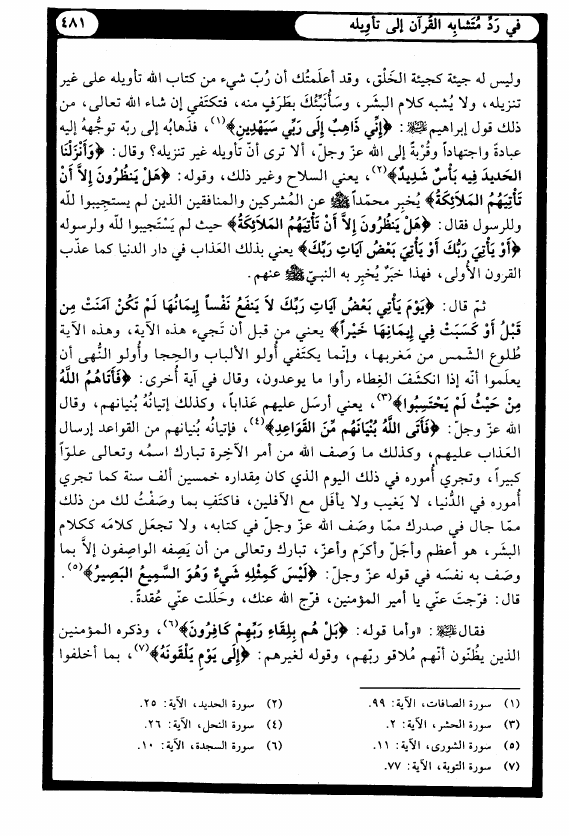 في رَدِّ مُتَشابِه القُرآن إلى تأوِيله
٤٨١
وليس له جيئة كجيئة الخَلْق، وقد أعلَمتُك أن رُبّ شيء من كتاب الله تأويله على غير
تنزيله، ولا يُشبه كلام البشَر، وسأُنَبِّئُكَ بطَرَفٍ منه، فتكتَفي إن شاء الله تعالى، من
ذلك قول إبراهيم ﷺ: ﴿إِنِّي ذَاهِبٌ إِلَى رَبِّي سَيَهْدِينِ﴾(١)، فذَهابُه إلى ربّه توجُّهه إليه
عبادةً واجتهاداً وقُربَةً إلى الله عزّ وجلّ، ألا ترى أنّ تأويله غير تنزيله؟ وقال: ﴿وَأَنْزَلْنَا
الحَديدَ فيه بَأْسٌ شَديدٌ﴾(٢)، يعني السلاح وغير ذلك، وقوله: ﴿هَلْ يَنظُرُونَ إِلاَّ أَنْ
تَأْتِيَهُمُ المَلائكَةُ﴾ يُخبِر محمّداً ﷺ عن المُشركين والمنافقين الذين لم يستجيبوا لله
وللرسول فقال: ﴿هَلْ يَنظُرُونَ إِلاَّ أَنْ تَأْتِيَهُمُ المَلائِكَةُ﴾ حيث لم يَسْتَجيبوا لله ولرسوله
﴿أَوْ يَأْتِيَ رَبُّكَ أَوْ يَأْتِيَ بَعْضُ آيَاتِ رَبِّكَ﴾ يعني بذلك العَذاب في دار الدنيا كما عذّب
القرون الأُولى، فهذا خَبَرٌ يُخبِر به النبيّ ﷺ عنهم.
ثمّ قال: ﴿يَوْمَ يَأْتِي بَعْضُ آيَاتِ رَبِّكَ لاَ يَنفَعُ نَفْساً إِيمَانُهَا لَمْ تَكُنْ آمَنَتْ مِن
قَبْلُ أَوْ كَسَبَتْ فِي إِيمَانِهَا خَيْراً﴾ يعني من قبل أن تَجيء هذه الآية، وهذه الآية
طُلوع الشّمس من مَغربها، وإنّما يكتَفي أُولو الألباب والحِجا وأُولو النُّهى أن
يعلَموا أنّه إذا انكشَفَ الغِطاء رأوا ما يوعدون، وقال في آية أُخرى: ﴿فَأَتَاهُمُ اللَّهُ
مِنْ حَيْثُ لَمْ يَحْتَسِبُوا﴾(٣)، يعني أرسل عليهم عَذاباً، وكذلك إتيانُهُ بُنيانهم، وقال
الله عزّ وجلّ: ﴿فَأَتَى اللَّهُ بُنْيَانَهُم مِّنَ القَوَاعِدِ﴾(٤)، فإتيانُه بُنيانهم من القواعد إرسال
العَذاب عليهم، وكذلك ما وَصف الله من أمر الآخِرة تبارك اسمُه وتعالى علوّاً
كبيراً، وتجري أُموره في ذلك اليوم الذي كان مِقداره خمسين ألف سنة كما تجري
أُموره في الدُّنيا، لا يَغيب ولا يأفَل مع الآفلين، فاكتَفِ بما وصَفْتُ لك من ذلك
ممّا جال في صدرك ممّا وصَف الله عزّ وجلّ في كتابه، ولا تجعَل كلامَه ككلام
البشَر، هو أعظم وأجَلّ وأكرَم وأعزّ، تبارك وتعالى من أن يَصِفه الواصِفون إلاّ بما
وصَف به نفسَه في قوله عزّ وجلّ: ﴿لَيْسَ كَمِثْلِهِ شَيءٌ وَهُوَ السَّمِيعُ البَصِيرُ﴾(٥).
قال: فرّجتَ عنّي يا أمير المؤمنين، فرّج الله عنك، وحلَلت عنّي عُقدةً.
فقال ﷺ: «وأما قوله: ﴿بَلْ هُم بِلِقَاءِ رَبِّهِمْ كَافِرُونَ﴾(٦)، وذكره المؤمنين
الذين يظُنّون أنّهم مُلاقو ربهم، وقوله لغيرهم: ﴿إِلَى يَوْمِ يَلْقَوْنَهُ﴾(٧)، بما أخلفوا
(١) سورة الصافات، الآية: ٩٩.
(٢) سورة الحديد، الآية: ٢٥.
(٣) سورة الحشر، الآية: ٢.
(٤) سورة النحل، الآية: ٢٦.
(٥) سورة الشورى، الآية: ١١.
(٦) سورة السجدة، الآية: ١٠.
(٧) سورة التوبة، الآية: ٧٧.